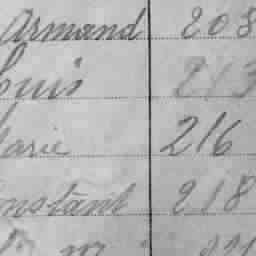 Armand 208
ouis 213
arie 216
onstant 218